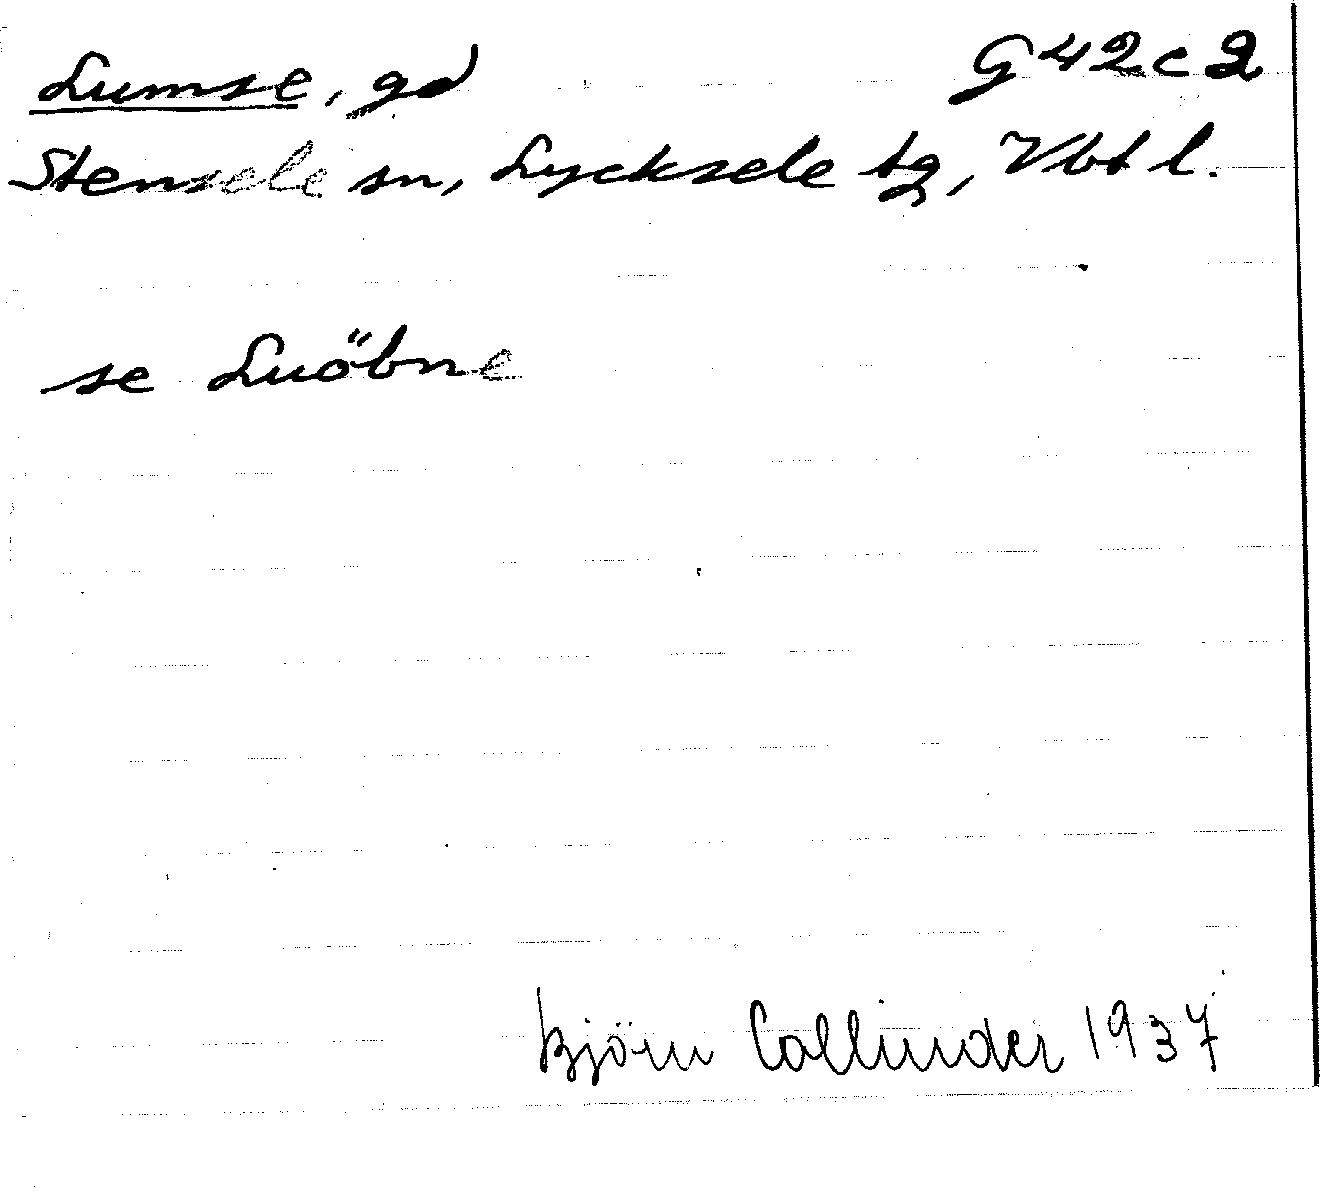 Lumse, gd G42c2
Stensele sn, Lycksele tg, Vbtl.
se Luöbne
Björn Collinder 1937